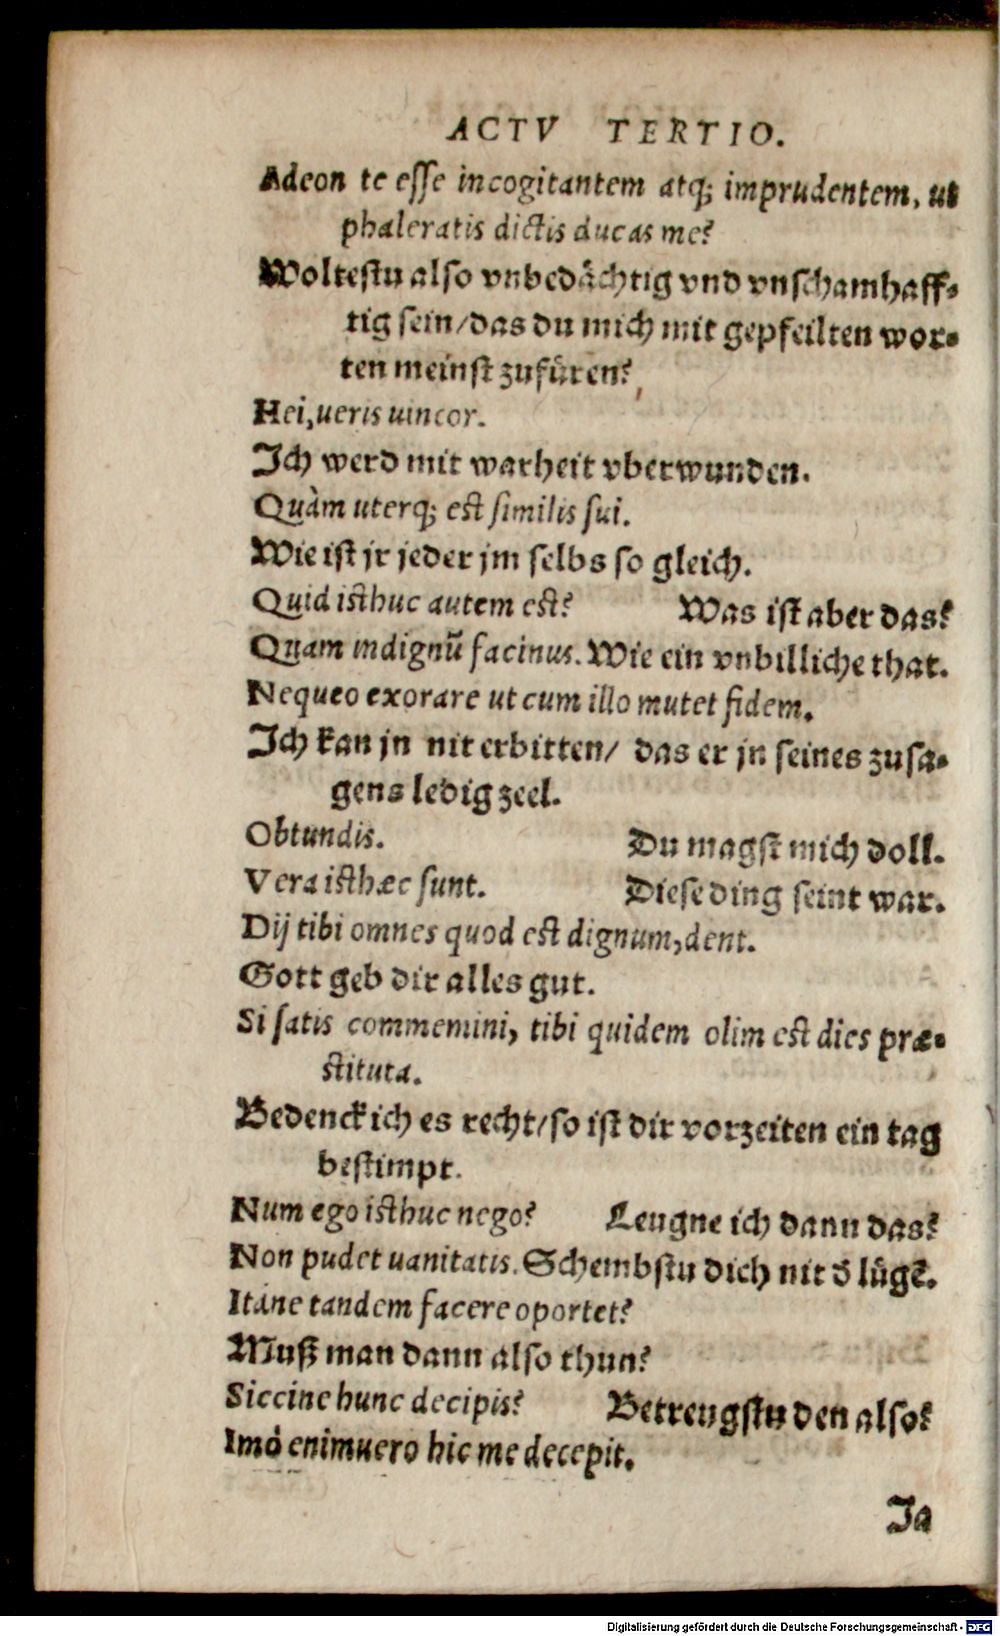 ACTV TERTIO.
Adeon te esse incogitantem atq; imprudentem, ut
phaleratis dictis ducas me?
Woltestu also vnbedächtig vnd vnschamhaff-
tig sein/das du mich mit gepfeilten wor-
ten meinst zufüren?
Hei, ueris uincor.
Ich werd mit warheit vberwunden.
Quàm uterq; est similis sui.
Wie ist jr jeder jm selbs so gleich.
Quid isthuc autem est? Was ist aber das?
Quam indignũ facinus. Wie ein vnbilliche that.
Nequeo exorare ut cum illo mutet fidem.
Ich kan jn nit erbitten/ das er jn seines zusa-
gens ledig zeel.
Obtundis. Du magst mich doll.
Vera isthæc sunt. Diese ding seint war.
Dij tibi omnes quod est dignum, dent.
Gott geb dir alles gut.
Si satis commemini, tibi quidem olim est dies præ-
stituta.
Bedenck ich es recht/so ist dir vorzeiten ein tag
bestimpt.
Num ego isthuc nego? Leugne ich dann das?
Non pudet uanitatis. Schembstu dich nit õ lügẽ.
Itáne tandem facere oportet?
Muß man dann also thun?
Siccine hunc decipis? Betreugstu den also?
Imò enimuero hic me decepit.
Ja
Digitalisierung gefördert durch die Deutsche Forschungsgemeinschaft - DFG